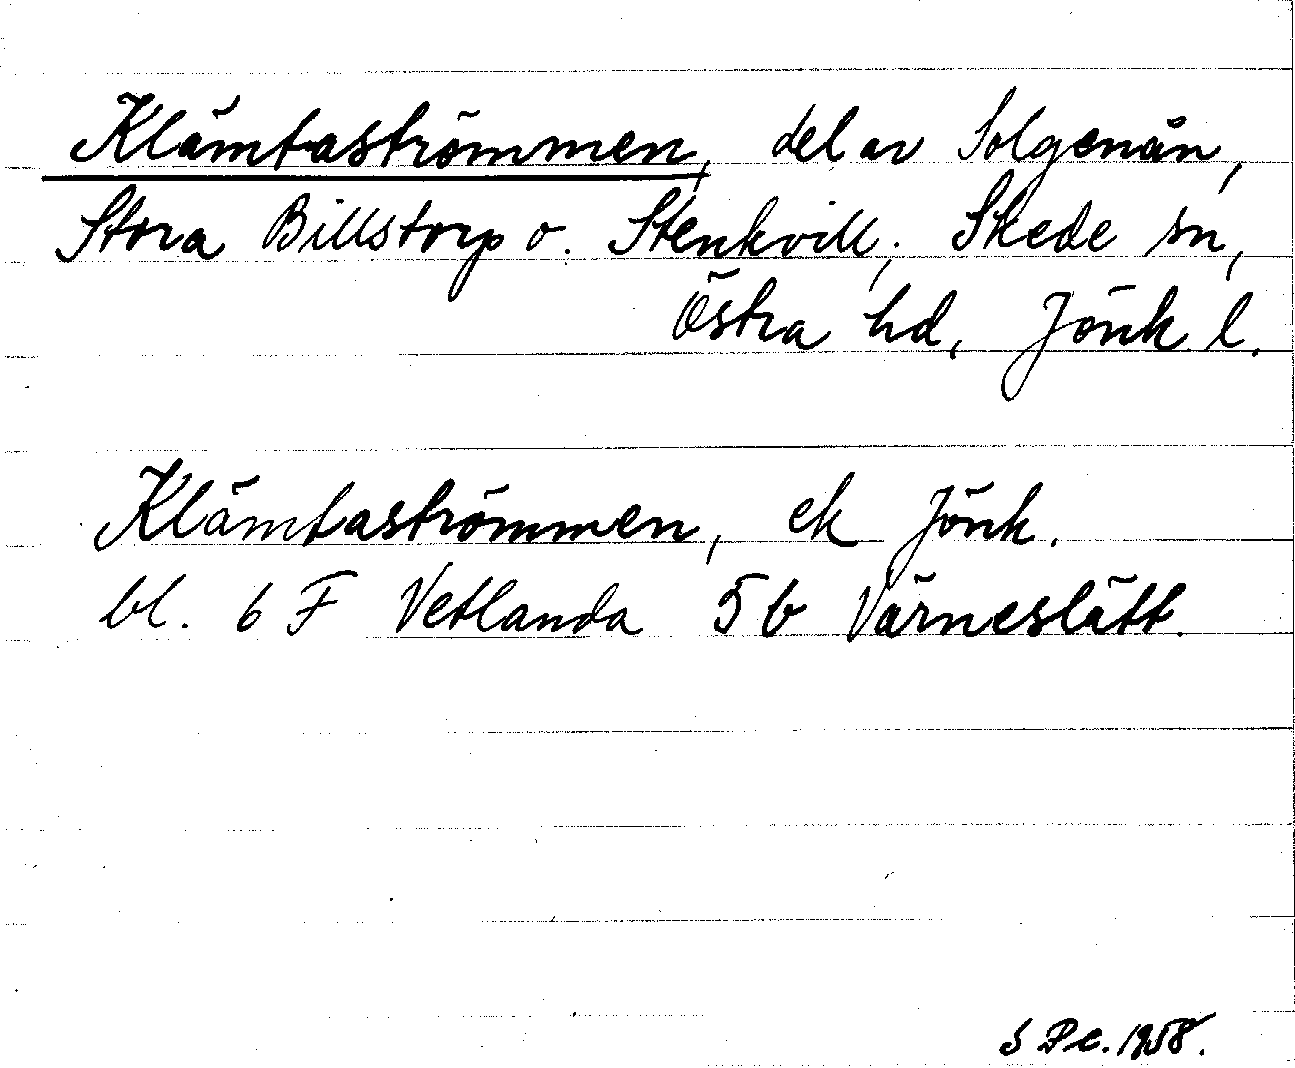 Klämtaströmmen, del av Solgenån,
Stora Billstorp o. Stenkvill, Skede sn,
Östra hd, Jönk l.
Klämtaströmmen, ek Jönk.
bl. 6 F Vetlanda 5 b Värneslätt.
1958.